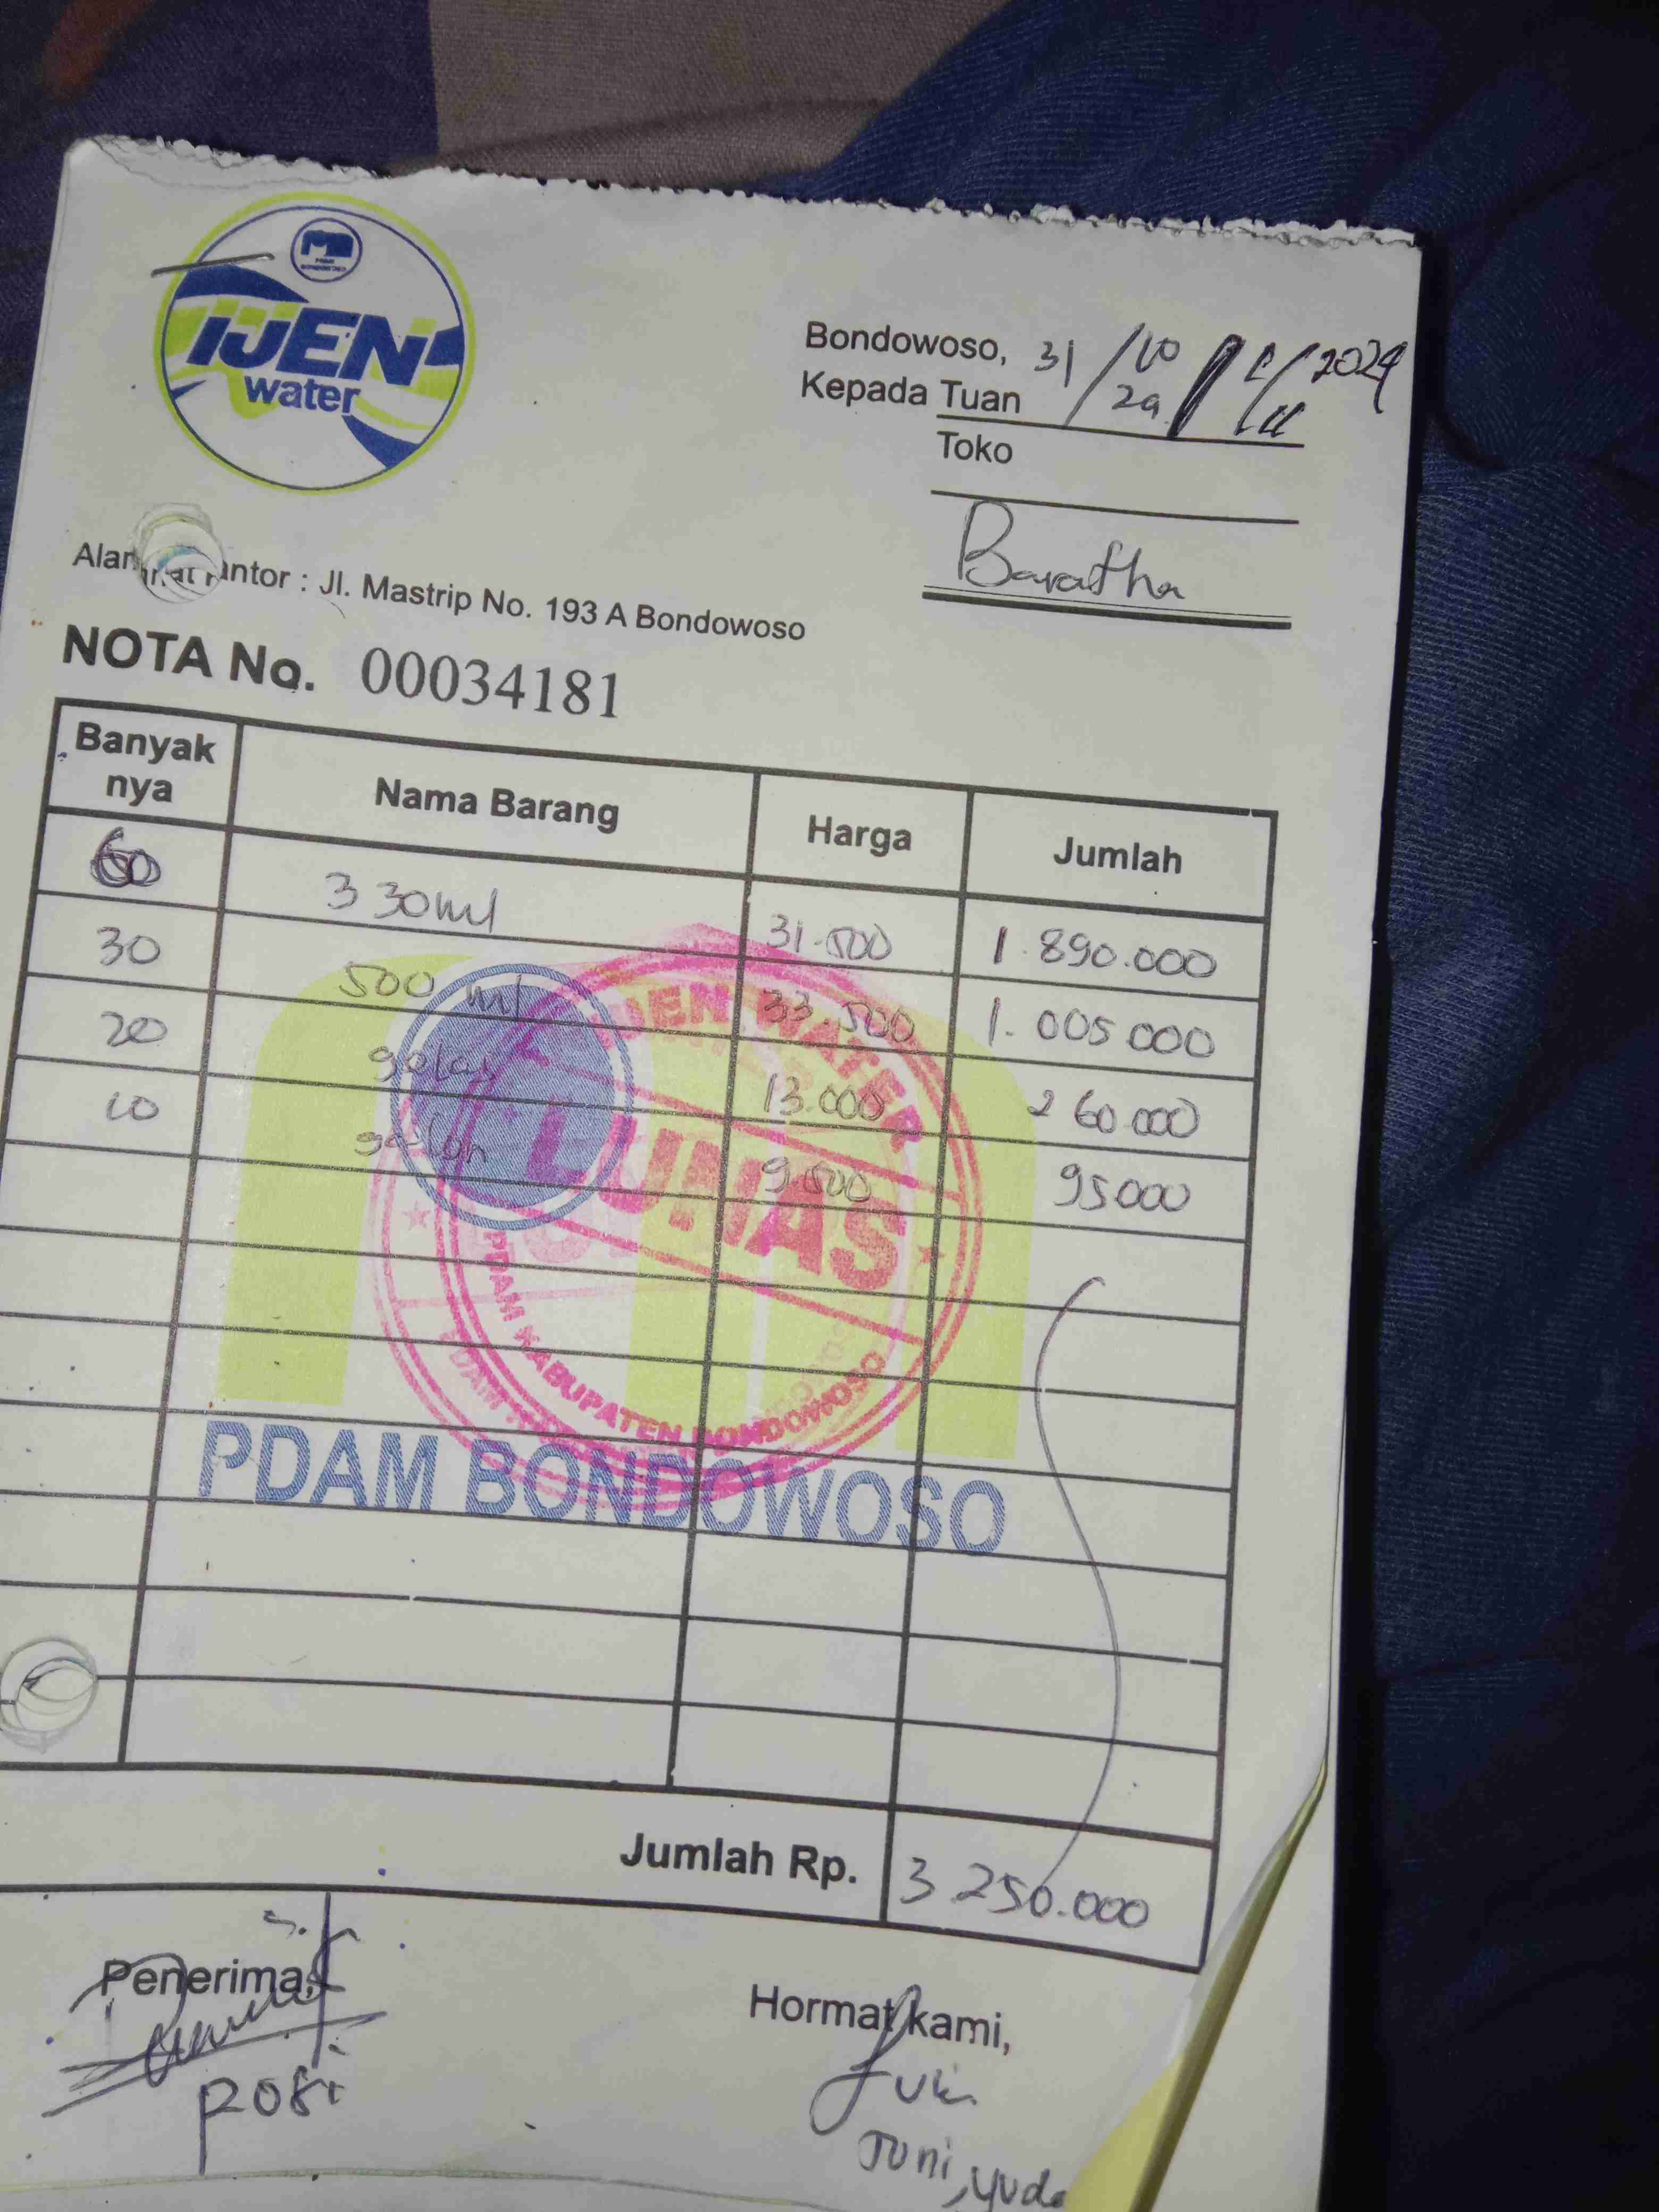 PDAM BONDOWOSO
IJEN
water
Bondowoso, 31/10 2024
Kepada Tuan
Toko
Baratha
Alamat Kantor : Jl. Mastrip No. 193 A Bondowoso
NOTA No. 00034181
Banyak nya Nama Barang Harga Jumlah
60 330 ml 31.500 1.890.000
30 500 ml 33.500 1.005 000
20 gelas 13.000 260 000
10 galon 9.500 95000
IJEN WATER
LUNAS
PDAM KABUPATEN BONDOWOSO
PDAM BONDOWOSO
Jumlah Rp. 3 250.000
Penerima,
Rosi
Hormat kami,
Juni, yuda